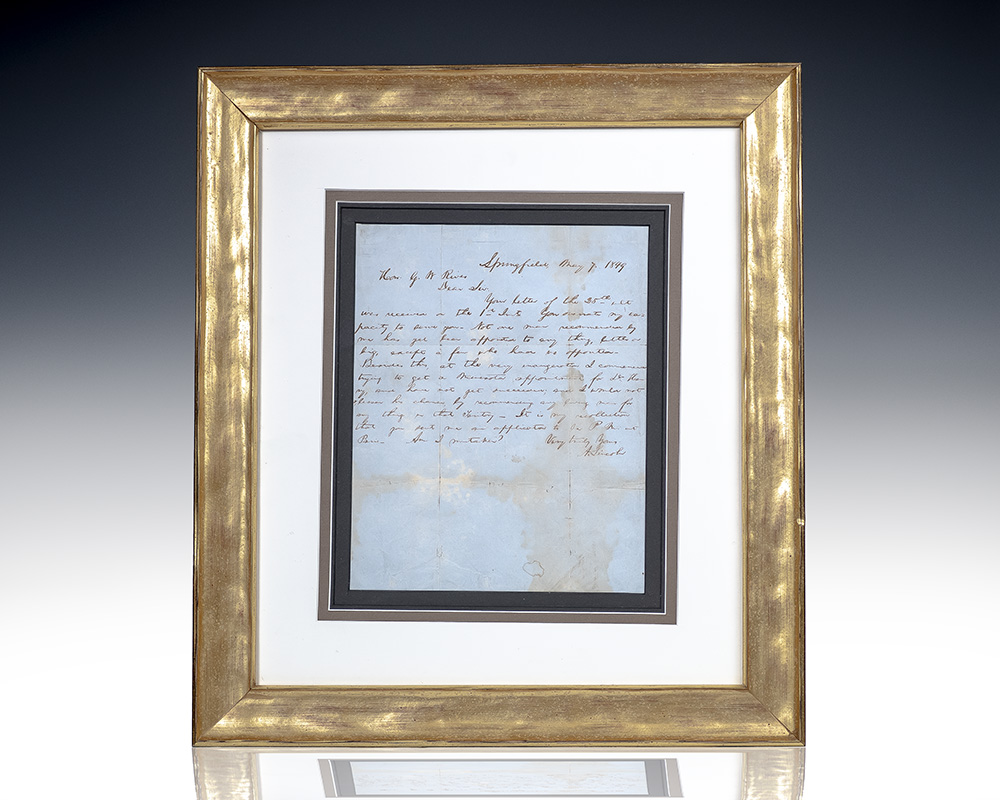 Springfield, May 7, 1849
Hon. G. W. Rives
Dear Sir.
Your letter of the 25th, ult
was received on the 1st Inst. You overrate my ca-
pacity to serve you. Not one man recommended by
me has yet been appointed to any thing, little or
big, except a few who had no opposition
Besides this, at the very inauguration I commenced
trying to get a Minesota appointment for
have not yet succeeded, and I would not
his chances by recommending any man for
any thing in that Teritory — It is my recollection
that you sent me an application to be P. M. at
Paris — Am I mistaken? Very truly Yours
A. Lincoln